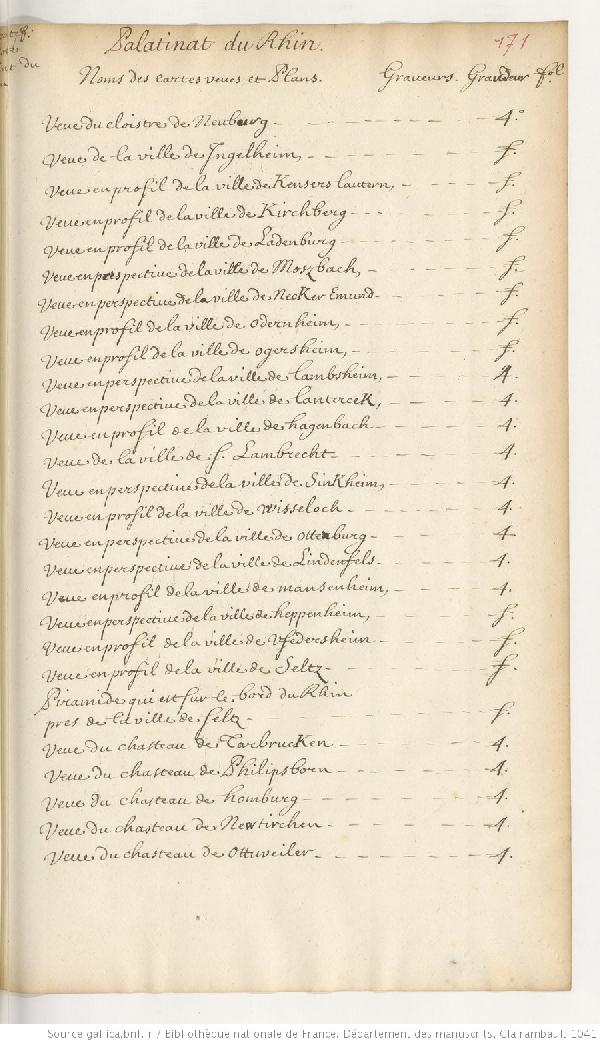 Palatinat du Rhin. 171
Noms des cartes veues et Plans. Graueurs. Grandeur fol.
Veue du cloistre de Neuburg - 4°
Veue de la ville de Ingelheim, - f.
Veue en profil de la ville de Keisers lautern, - f.
Veue en profil de la ville de Kirchberg - f.
Veue en profil de la ville de Ladenburg - f.
Veue en perspective de la ville de Moszbach, - f.
Veue en perspective de la ville de Necker Emund - f.
Veue en profil de la ville de Odernheim, - f.
Veue en profil de la ville de ogersheim, - f.
Veue en perspective de la ville de Lambsheim, - 4.
Veue en perspective de la ville de Lauterek, - 4.
Veue en profil de la ville de hagenbach - 4.
Veue de la ville de S. Lambrecht - 4.
Veue en perspective de la ville de SinKheim, - 4.
Veue en profil de la ville de Wisseloch - 4.
Veue en perspective de la ville de Ottenburg - 4
Veue en perspective de la ville de Lindenfels - 4.
Veue en profil de la ville de mansenheim, - 4.
Veue en perspective de la ville de heppenheim, - f.
Veue en profil de la ville de Pfedersheim - f.
Veue en profil de la ville de Seltz - f.
Piramide qui est sur le bord du Rhin
pres de la ville de seltz - f.
Veue du chasteau de Tarbrucken - 4.
Veue du chasteau de Philipsborn - 4.
Veue du chasteau de homburg - 4.
Veue du chasteau de Newkirchen - 4.
Veue du chasteau de Ottweiler - 4.
Source gallica.bnf.fr / Bibliothèque nationale de France. Département des manuscrits. Clairambault 1041